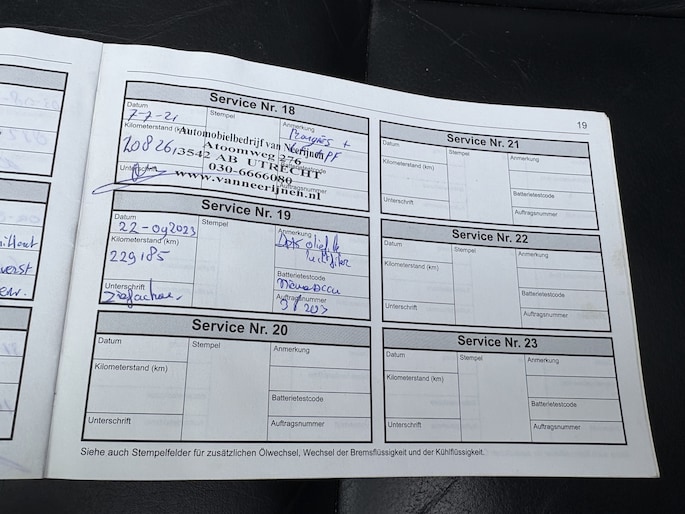 19
Service Nr. 18
Datum
7-7-21
Stempel
Anmerkung
Kilometerstand (km)
208261
Automobielbedrijf van Neerijnen
Atoomweg 276
3542 AB UTRECHT
030-6666080
www.vanneerijnen.nl
Unterschrift
Auftragsnummer
Service Nr. 19
Datum
22-09-2023
Stempel
Anmerkung
Kilometerstand (km)
229185
Batterietestcode
Unterschrift
Auftragsnummer
Service Nr. 20
Datum
Stempel
Anmerkung
Kilometerstand (km)
Batterietestcode
Unterschrift
Auftragsnummer
Service Nr. 21
Datum
Stempel
Anmerkung
Kilometerstand (km)
Batterietestcode
Unterschrift
Auftragsnummer
Service Nr. 22
Datum
Stempel
Anmerkung
Kilometerstand (km)
Batterietestcode
Unterschrift
Auftragsnummer
Service Nr. 23
Datum
Stempel
Anmerkung
Kilometerstand (km)
Batterietestcode
Unterschrift
Auftragsnummer
Siehe auch Stempelfelder für zusätzlichen Ölwechsel, Wechsel der Bremsflüssigkeit und der Kühlflüssigkeit.